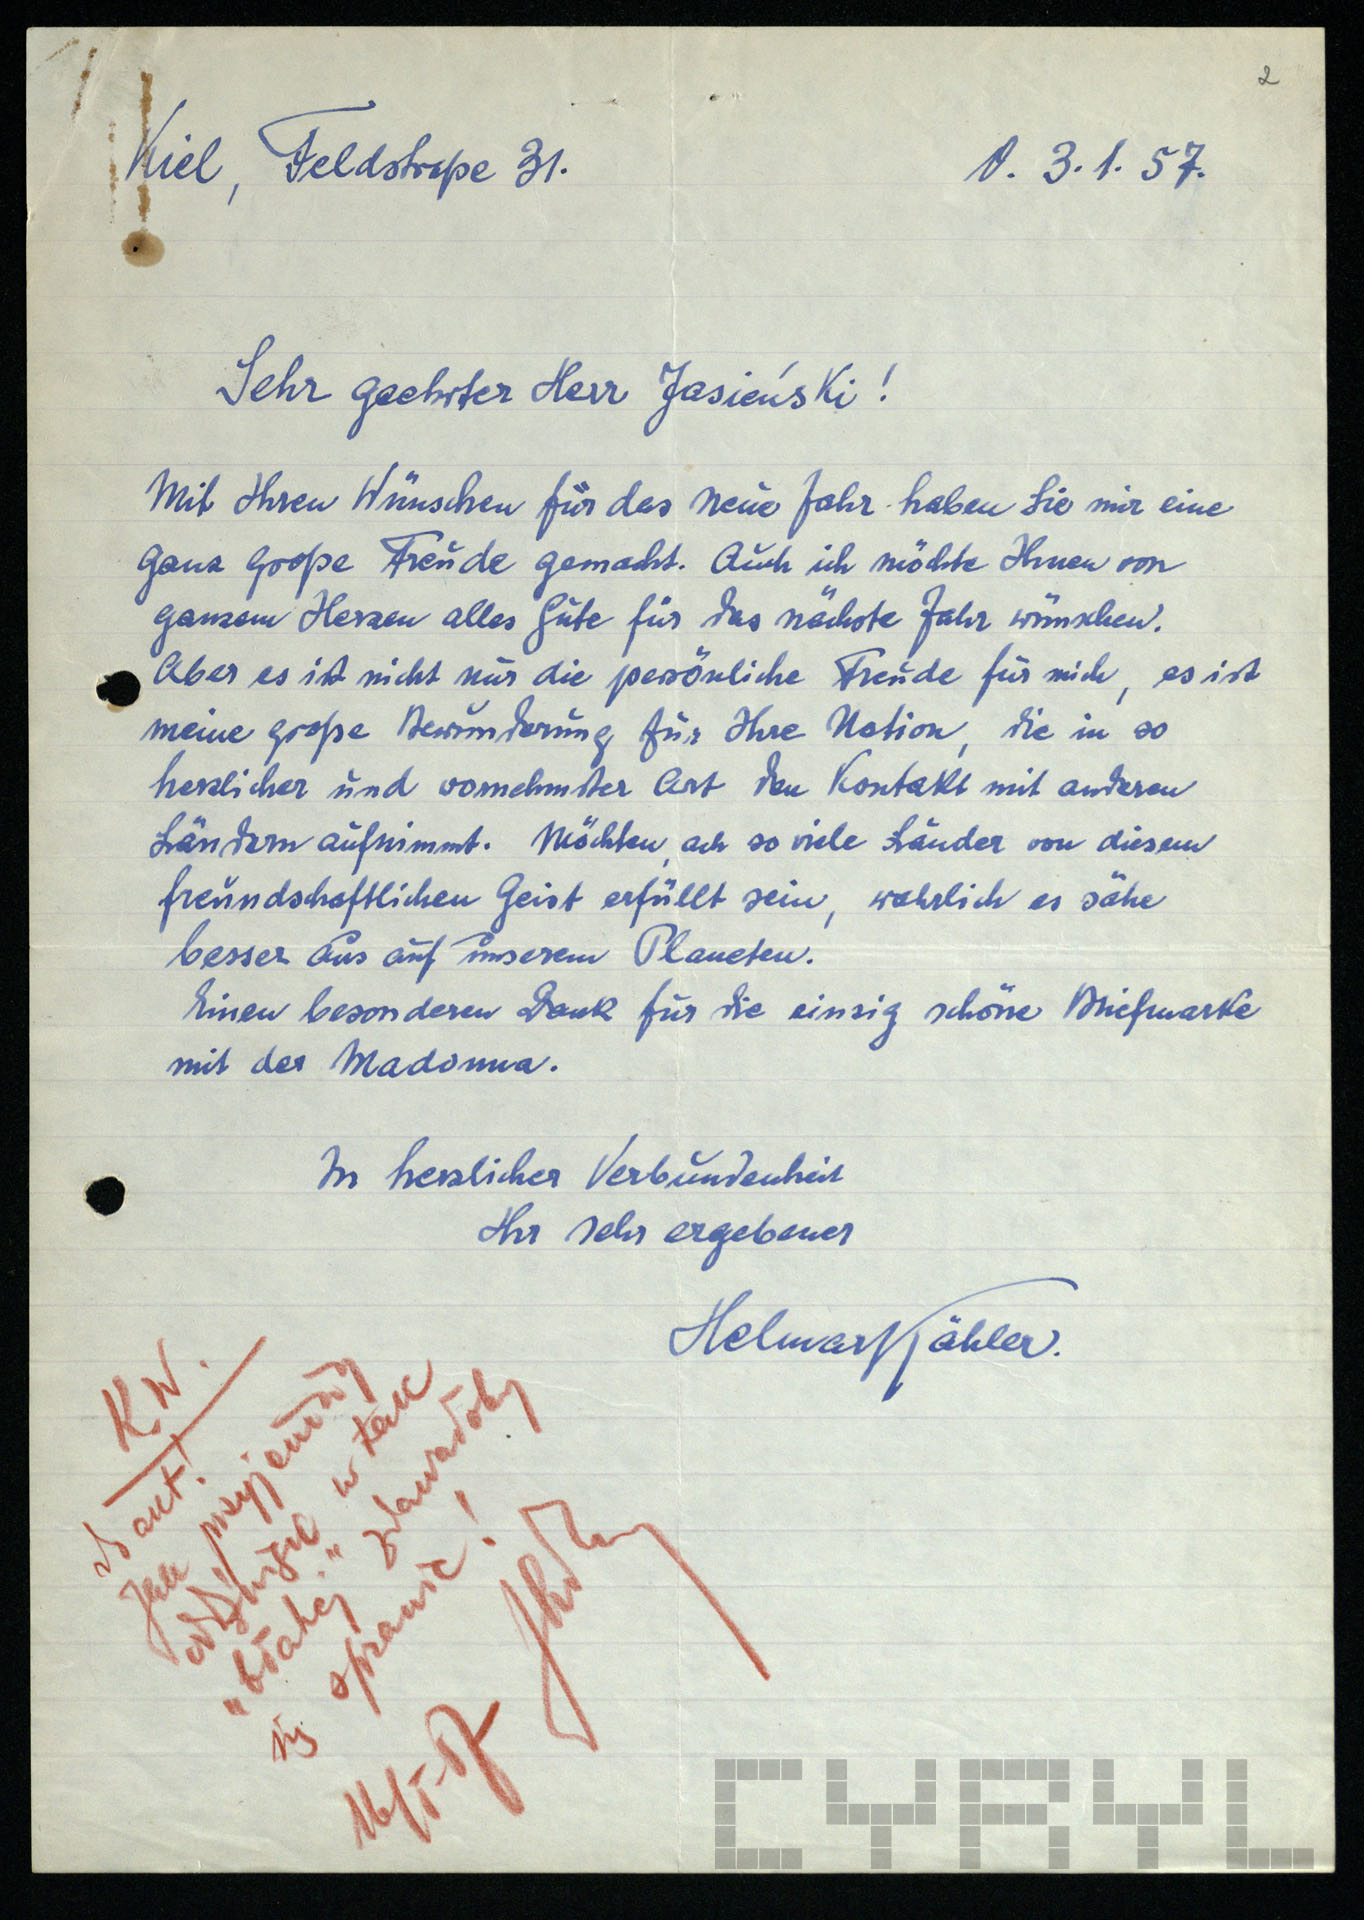 2
Kiel, Feldstraße 31. d. 3.1.57.
Sehr geehrter Herr Jasieński!
Mit Ihren Wünschen für das neue Jahr haben Sie mir eine
ganz große Freude gemacht. Auch ich möchte Ihnen von
ganzem Herzen alles Gute für das nächste Jahr wünschen.
Aber es ist nicht nur die persönliche Freude für mich, es ist
meine große Bewunderung für Ihre Nation, die in so
herzlicher und vornehmster Art den Kontakt mit anderen
Ländern aufnimmt. Möchten, ach so viele Länder von diesem
freundschaftlichen Geist erfüllt sein, wahrlich es sähe
besser aus auf unserem Planeten.
Einen besonderen Dank für die einzig schöne Briefmarke
mit der Madonna.
In herzlicher Verbundenheit
Ihr sehr ergebener
Helmar Kähler.
K.W.
do akt!
Jak przyjemny
oddźwięk w tak
"błahej" zdawałoby
się sprawie!
CYRYL